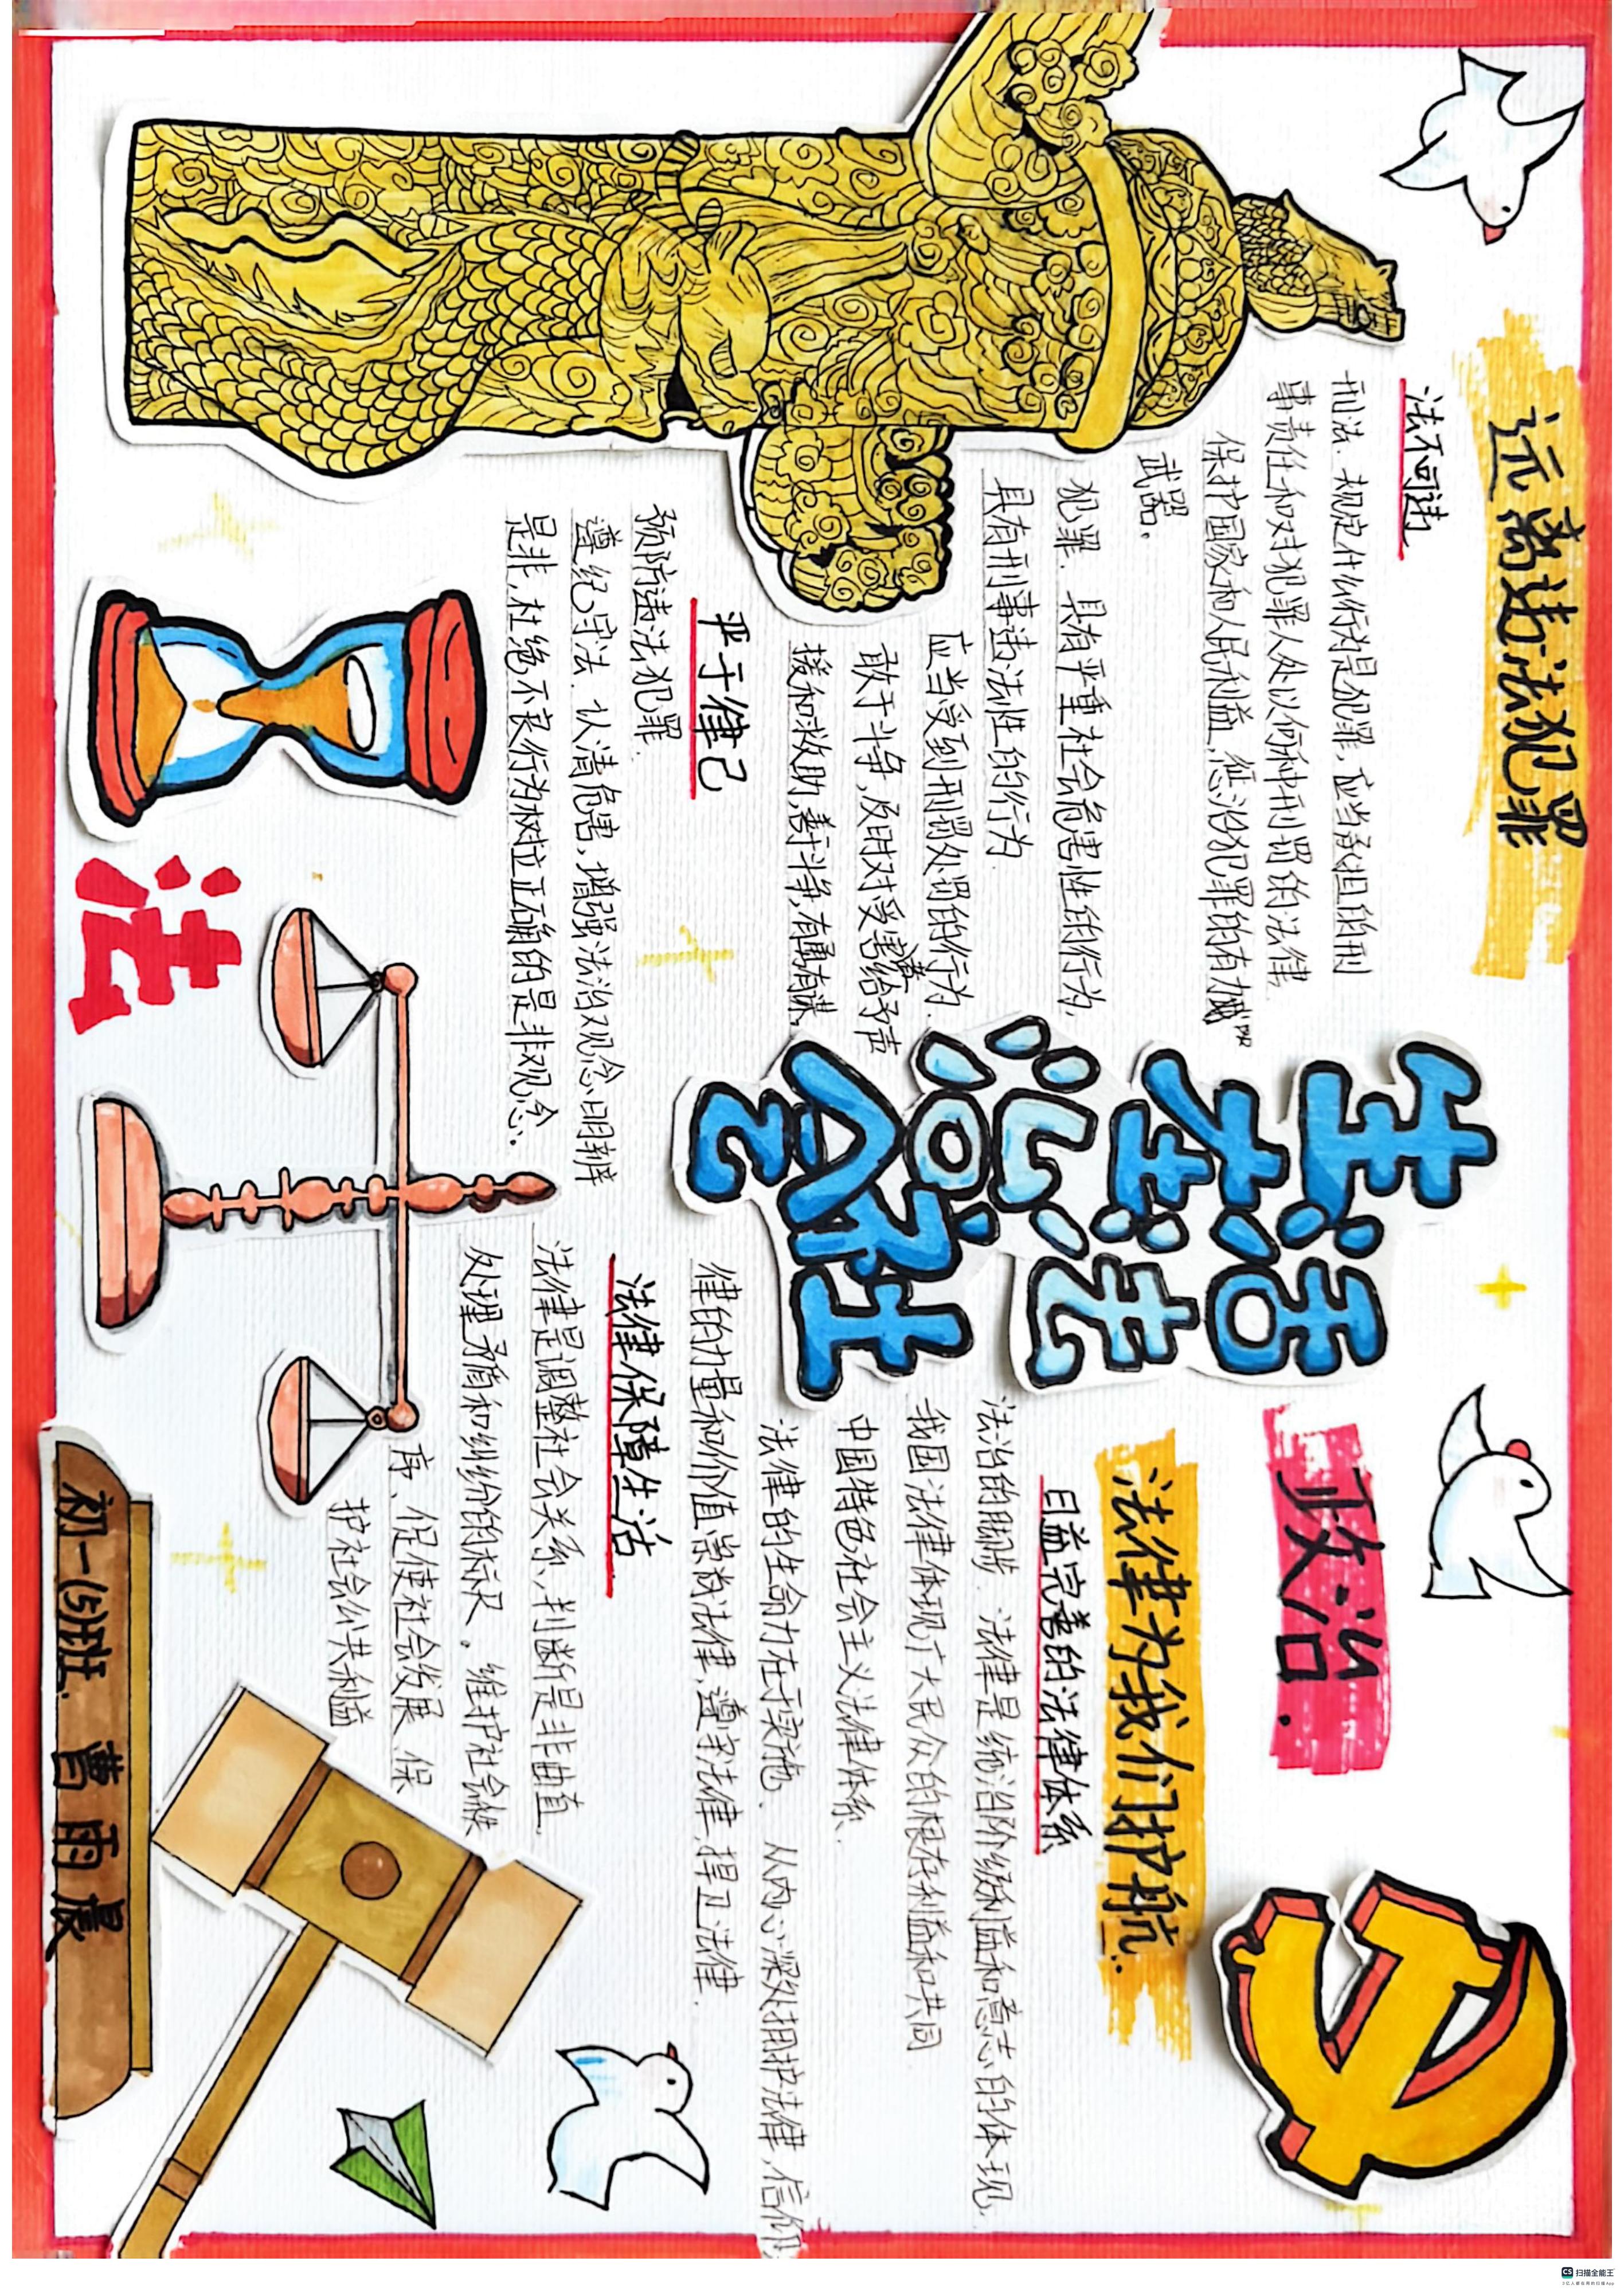 远离违法犯罪
法不可违
刑法. 规定什么行为是犯罪,应当承担的刑
事责任和对犯罪人处以何种刑罚的法律.
保护国家和人民利益,惩治犯罪的有力
武器.
犯罪. 具有严重社会危害性的行为,
具有刑事违法性的行为.
应当受到刑罚处罚的行为.
敢于斗争,及时对受害者给予声
援和救助,善于斗争,有勇有谋.
严于律己
预防违法犯罪.
遵纪守法. 认清危害,增强法治观念,明辨
是非,杜绝不良行为树立正确的是非观念.
法
生活在法治社会
政治.
法律为我们护航.
日益完善的法律体系
法治的脚步. 法律是统治阶级利益和意志的体现
我国法律体现广大民众的根本利益和共同
中国特色社会主义法律体系.
法律的生命力在于实施. 从内心深处拥护法律,信仰
律的力量和价值崇尚法律,遵守法律,捍卫法律.
法律保障生活
法律是调整社会关系、判断是非曲直、
处理矛盾和纠纷的标尺。维护社会秩
序、促使社会发展、保
护社会公共利益
初一(5)班. 曹雨晨
CS 扫描全能王
3亿人都在用的扫描App